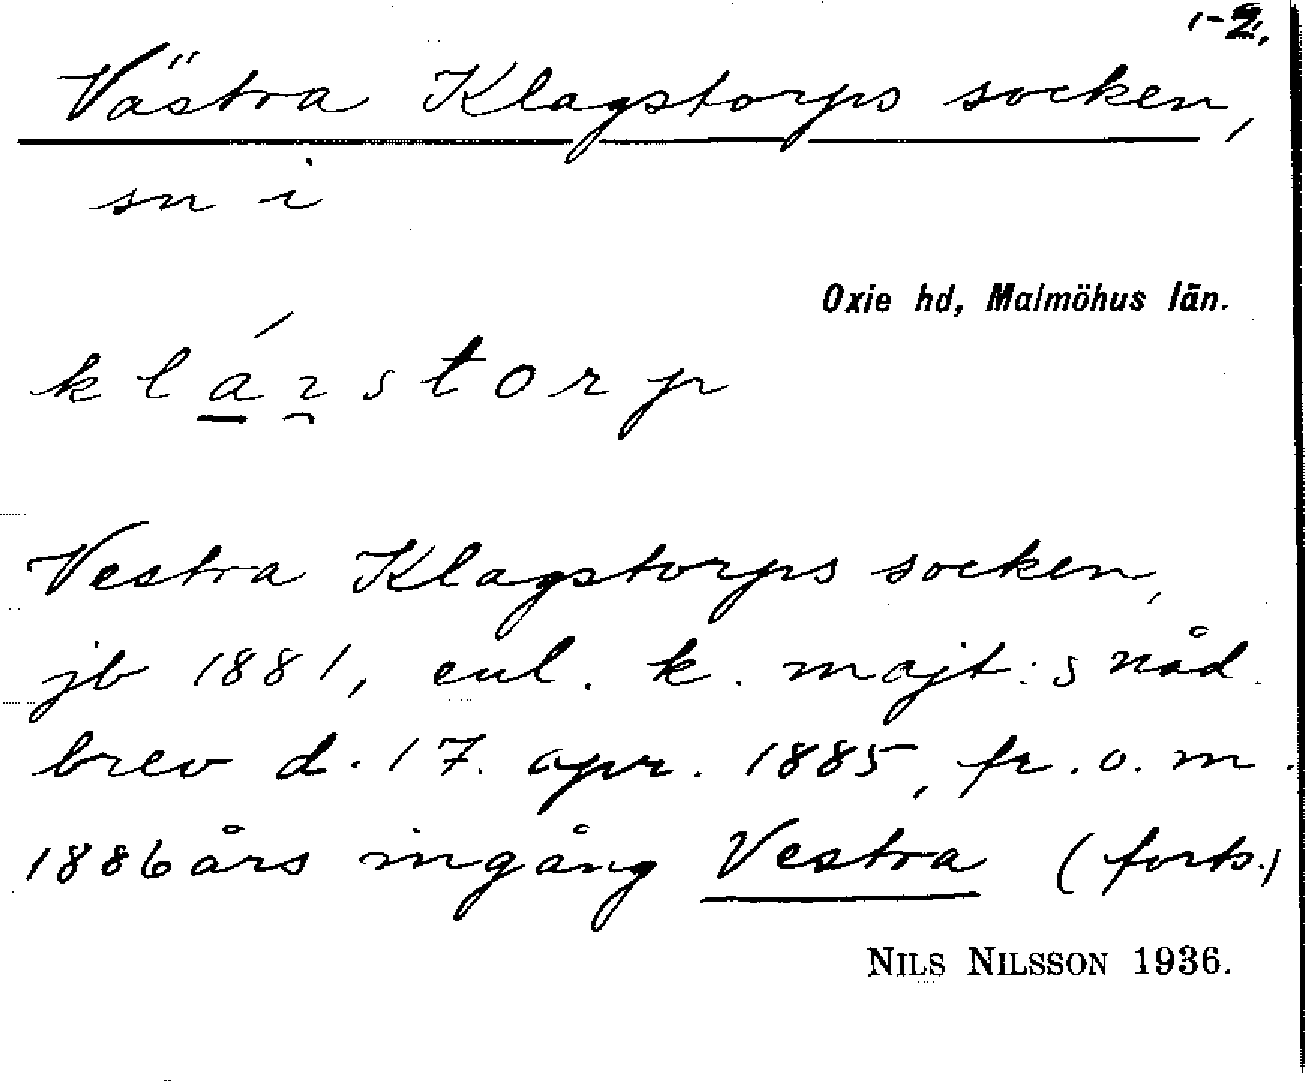 1-2.
Västra Klagstorps socken,
sn i
Oxie hd, Malmöhus län.
klá̱ɿ̯storp
Vestra Klagstorps socken,
jb 1881, enl. k. majt:s nåd.
brev d. 17. apr. 1885, fr. o. m.
1886 års ingång Vestra (forts.)
NILS NILSSON 1936.